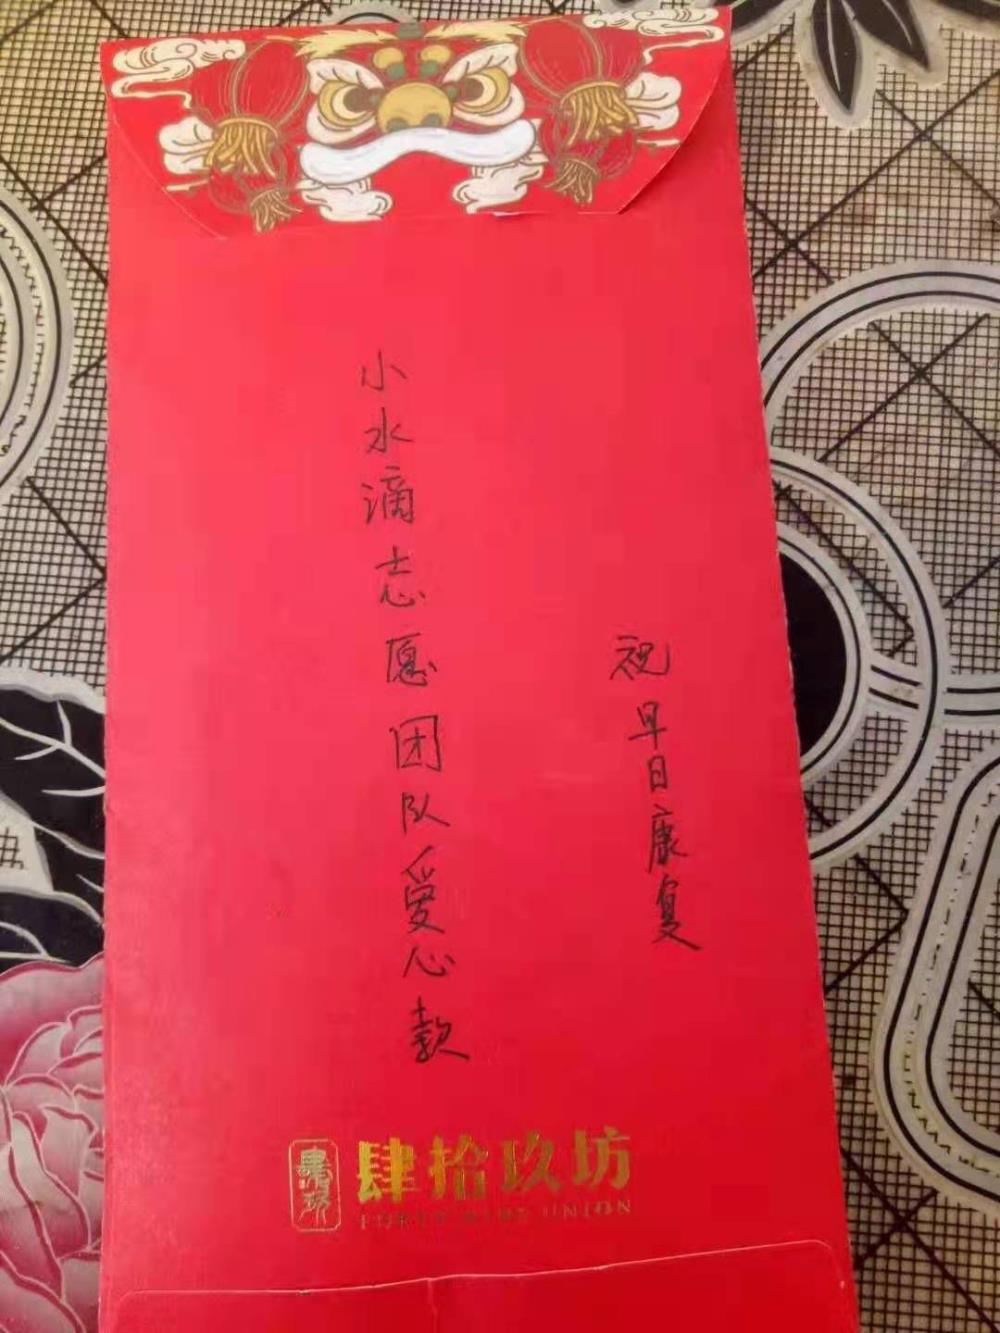 祝早日康复
小水滴志愿团队爱心款
肆拾玖坊
FORTY NINE UNION